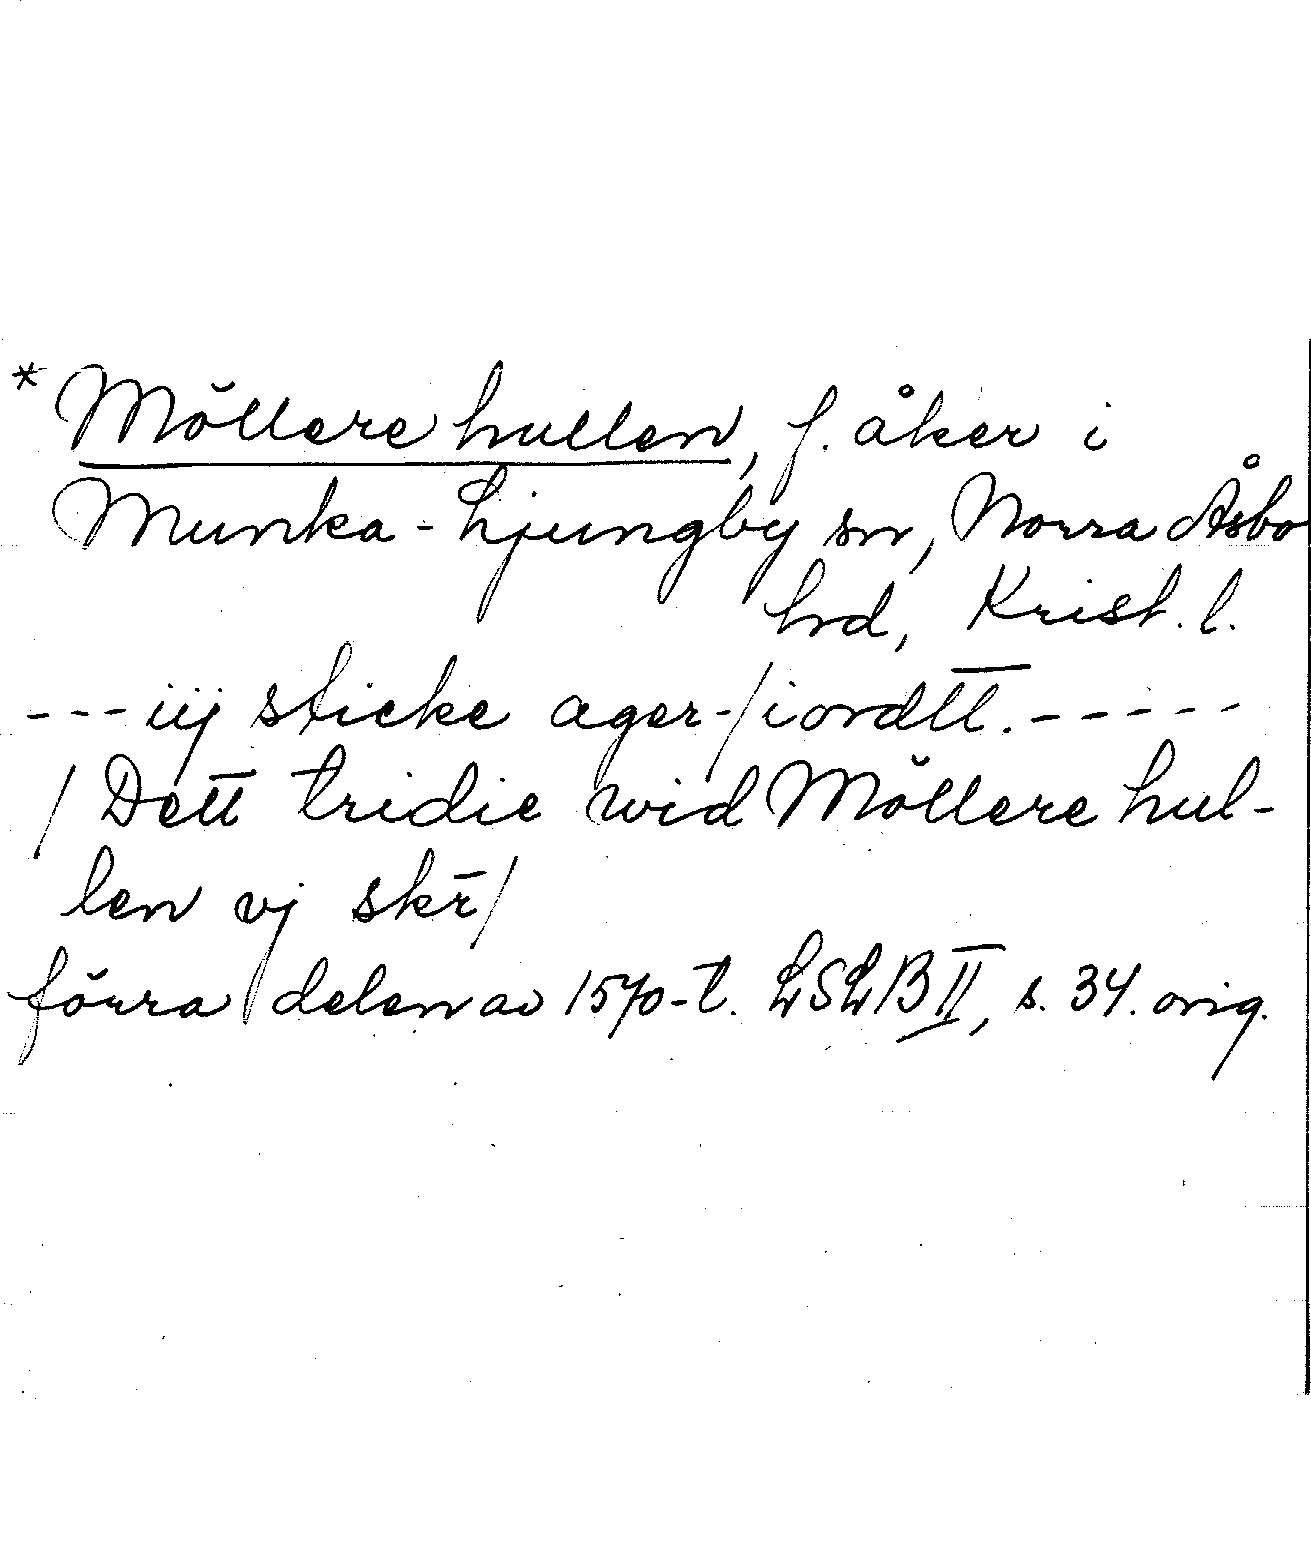 * Möllere hullen, f. åker i
Munka-Ljungby sn, Norra Åsbo
hrd, Krist. l.
---iij sticke ager-/iordtt.-----
/Dett tridie wid Möllere hul-
len vj skr/
förra delen av 1570-t. LSLB II, s. 34. orig.